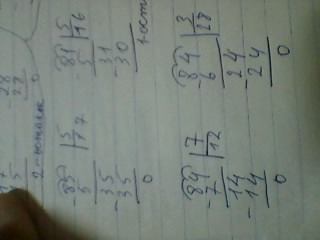 -85|5
5 |17
-35
35
0
-81|5
5 |16
-31
30
1 ост
-84|7
7 |12
-14
14
0
-84|3
6 |28
-24
24
0
-28
28
0